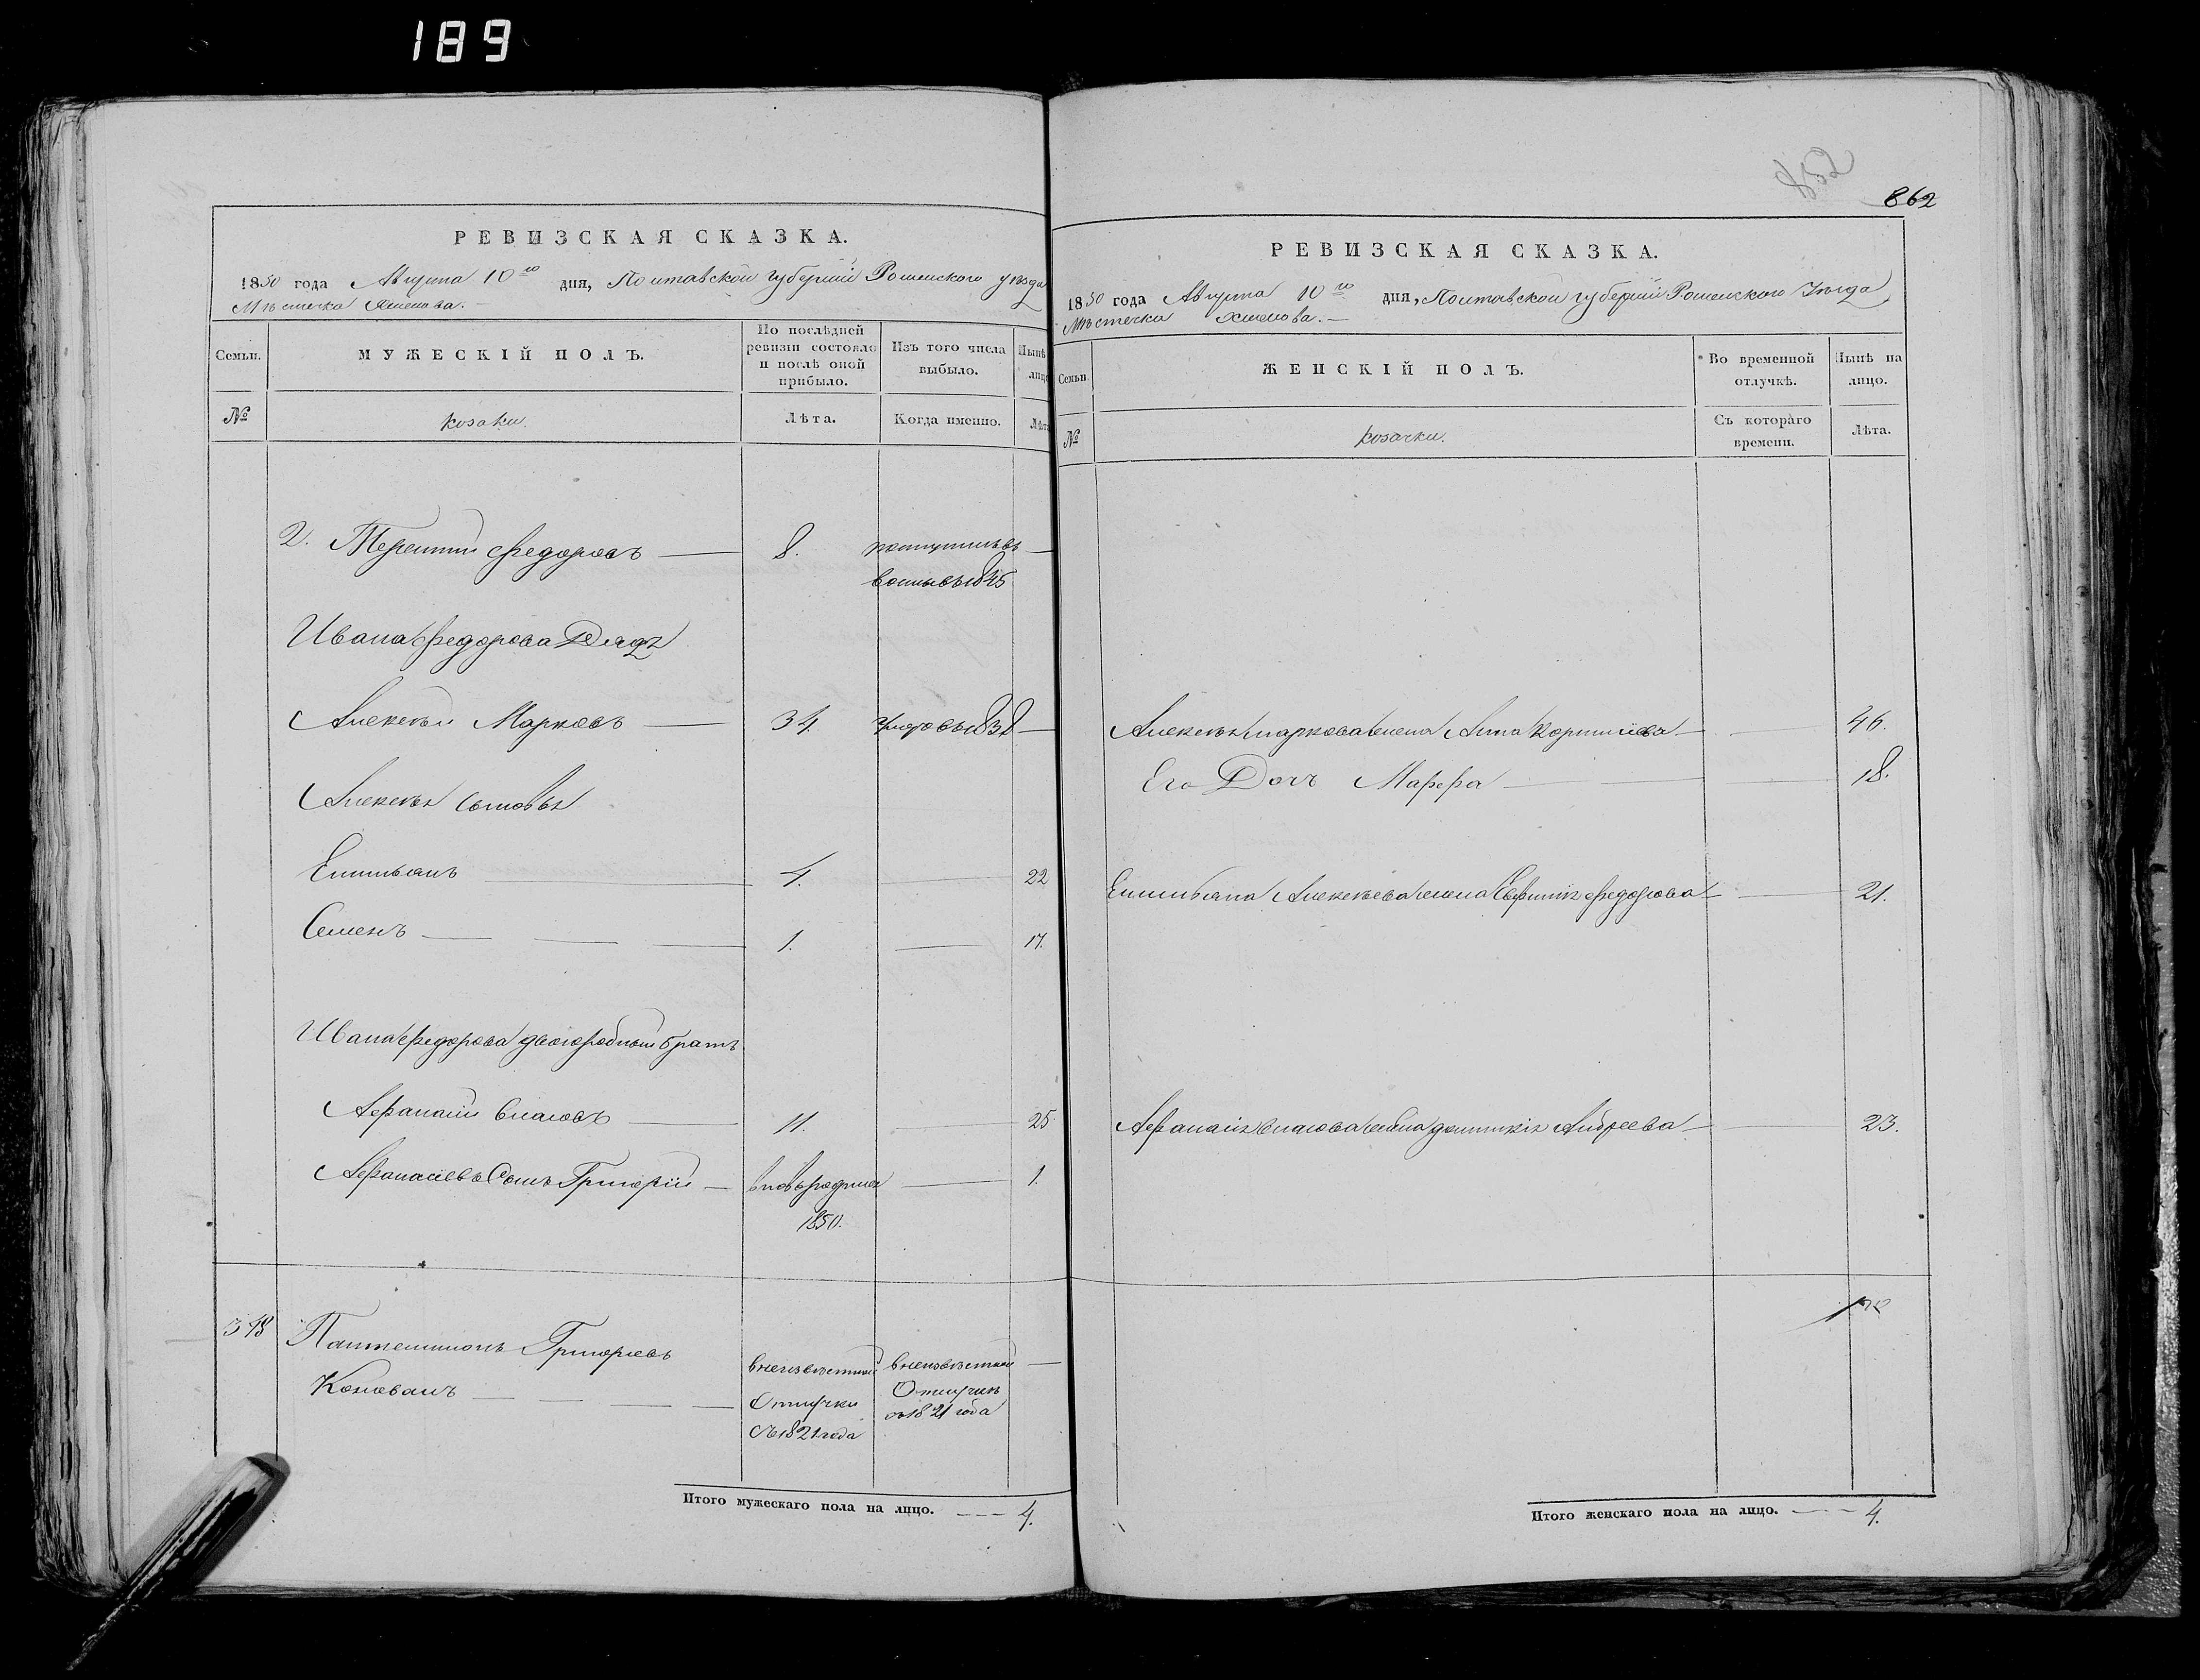 189
РЕВИЗСКАЯ СКАЗКА.
1850 года Августа 10го дня, Полтавской губернии Роменского уѣзда
Мѣстечка Хмелова.
Семьи.
МУЖЕСКІЙ ПОЛЪ.
По послѣдней ревизіи состояло и послѣ оной прибыло.
Изъ того числа выбыло.
Нынѣ
лицо
№
козаки.
Лѣта.
Когда именно.
Лѣта
2. Терентий Федоровъ — 8. поступилъ въ —
1845
Ивана Федорова Дядя
Алексѣй Марковъ — 34. умеръ въ 1838 —
Алексѣя сыновья
Емельянъ — 4. — 22
Семенъ — 1. — 17.
Ивана Федорова двоюродный братъ
Афанасий Власовъ — 11. — 25.
Афанасіевъ Сынъ Григорій — вновьрожден — 1.
1850.
348 Пантелимонъ Григорьевъ
Коновалъ —
в неизвѣстной
Отлучки
съ 1821 года
в неизвѣстной —
Отлучкѣ
съ 1821 года
Итого мужескаго пола на лицо. — 4.
852
862
РЕВИЗСКАЯ СКАЗКА.
1850 года Августа 10го дня, Полтавской губерніи Роменского Уѣзда
Мѣстечка Хмелова. —
Семьи
ЖЕНСКІЙ ПОЛЪ.
Во временной отлучкѣ.
Нынѣ на лицо.
№
козачки.
Съ котораго времени.
Лѣта.
Алексѣя Маркова жена Анна — 46.
Его Дочь Марфа — 18.
Емельяна Алексѣева жена Федорова — 21.
Афанасія Власова жена Андреева — 23.
Итого женскаго пола на лицо. — 4.